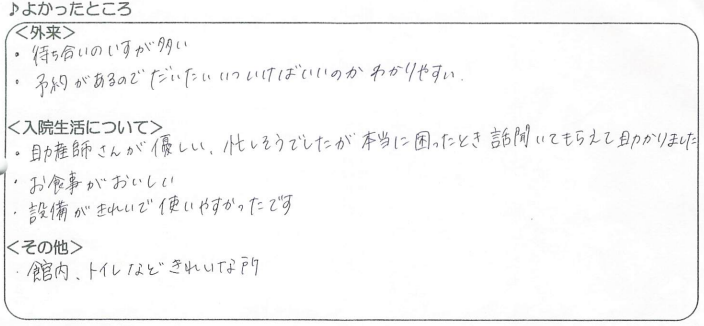 ♪よかったところ
<外来>
・待ち合いのいすが多い
・予約があるので だいたいいついけばいいのか わかりやすい.
<入院生活について>
・助産師さんが優しい、忙しそうでしたが 本当に困ったとき 話聞いてもらえて助かりました
・お食事がおいしい
・設備がきれいで使いやすかったです
<その他>
・館内、トイレなどきれいな所